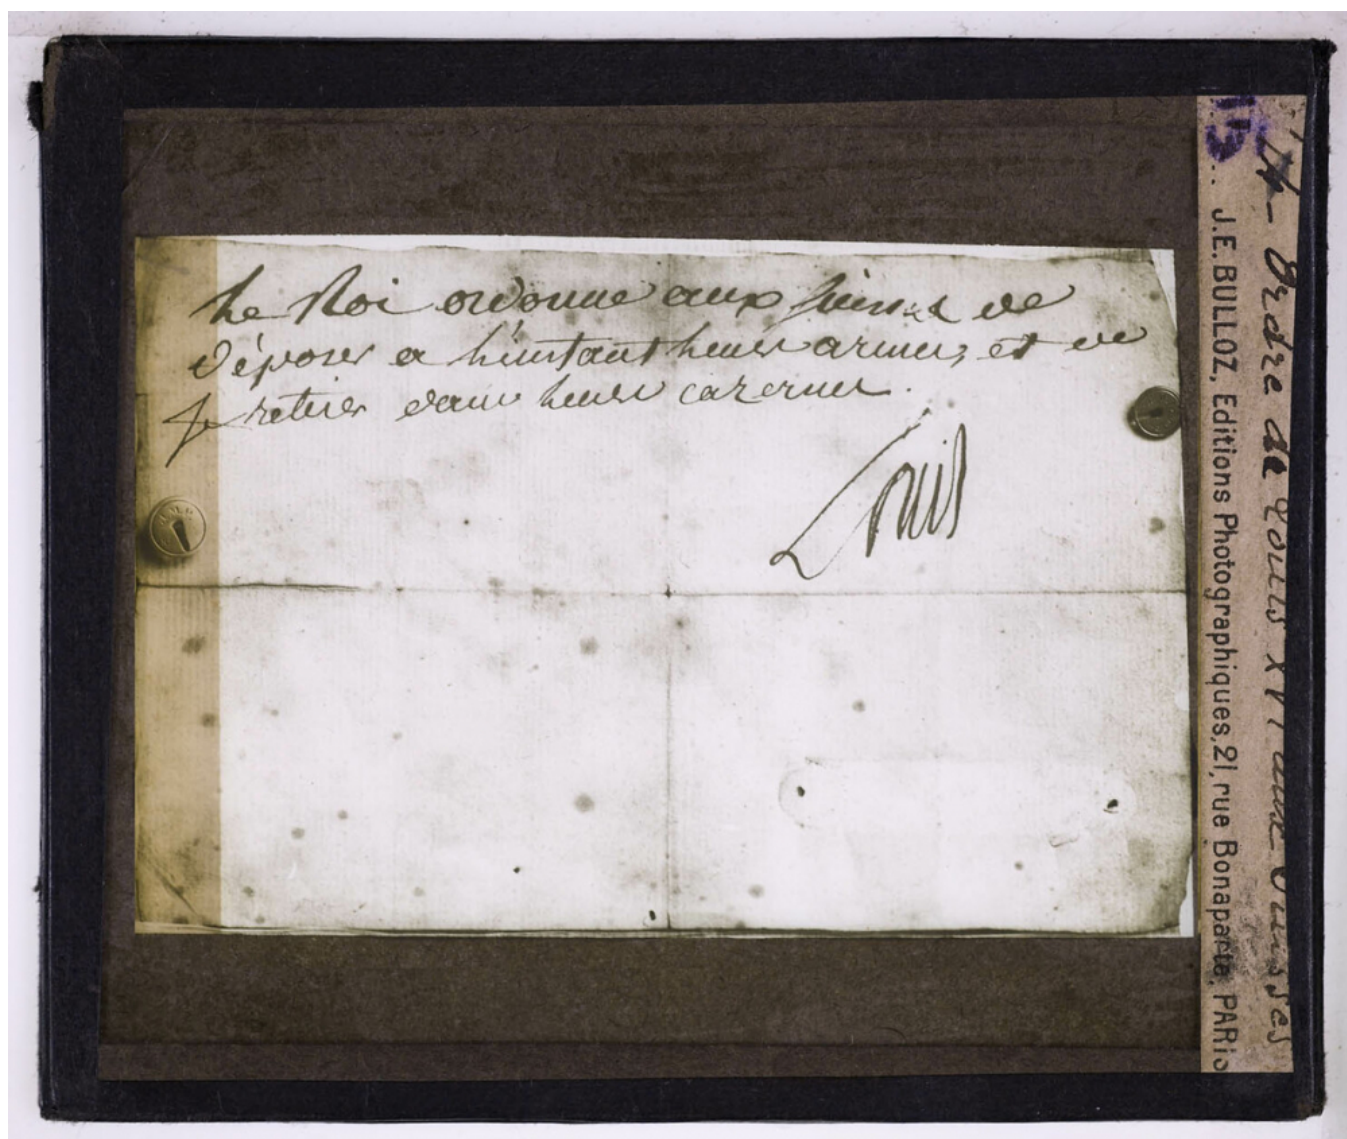 Le Roi ordonne aux Suisses de
déposer a l'instant leurs armes, et de
se retirer dans leurs cazernes.
Louis
Ordre de Louis XVI aux Suisses
J.E. BULLOZ, Editions Photographiques, 21, rue Bonaparte, PARIS